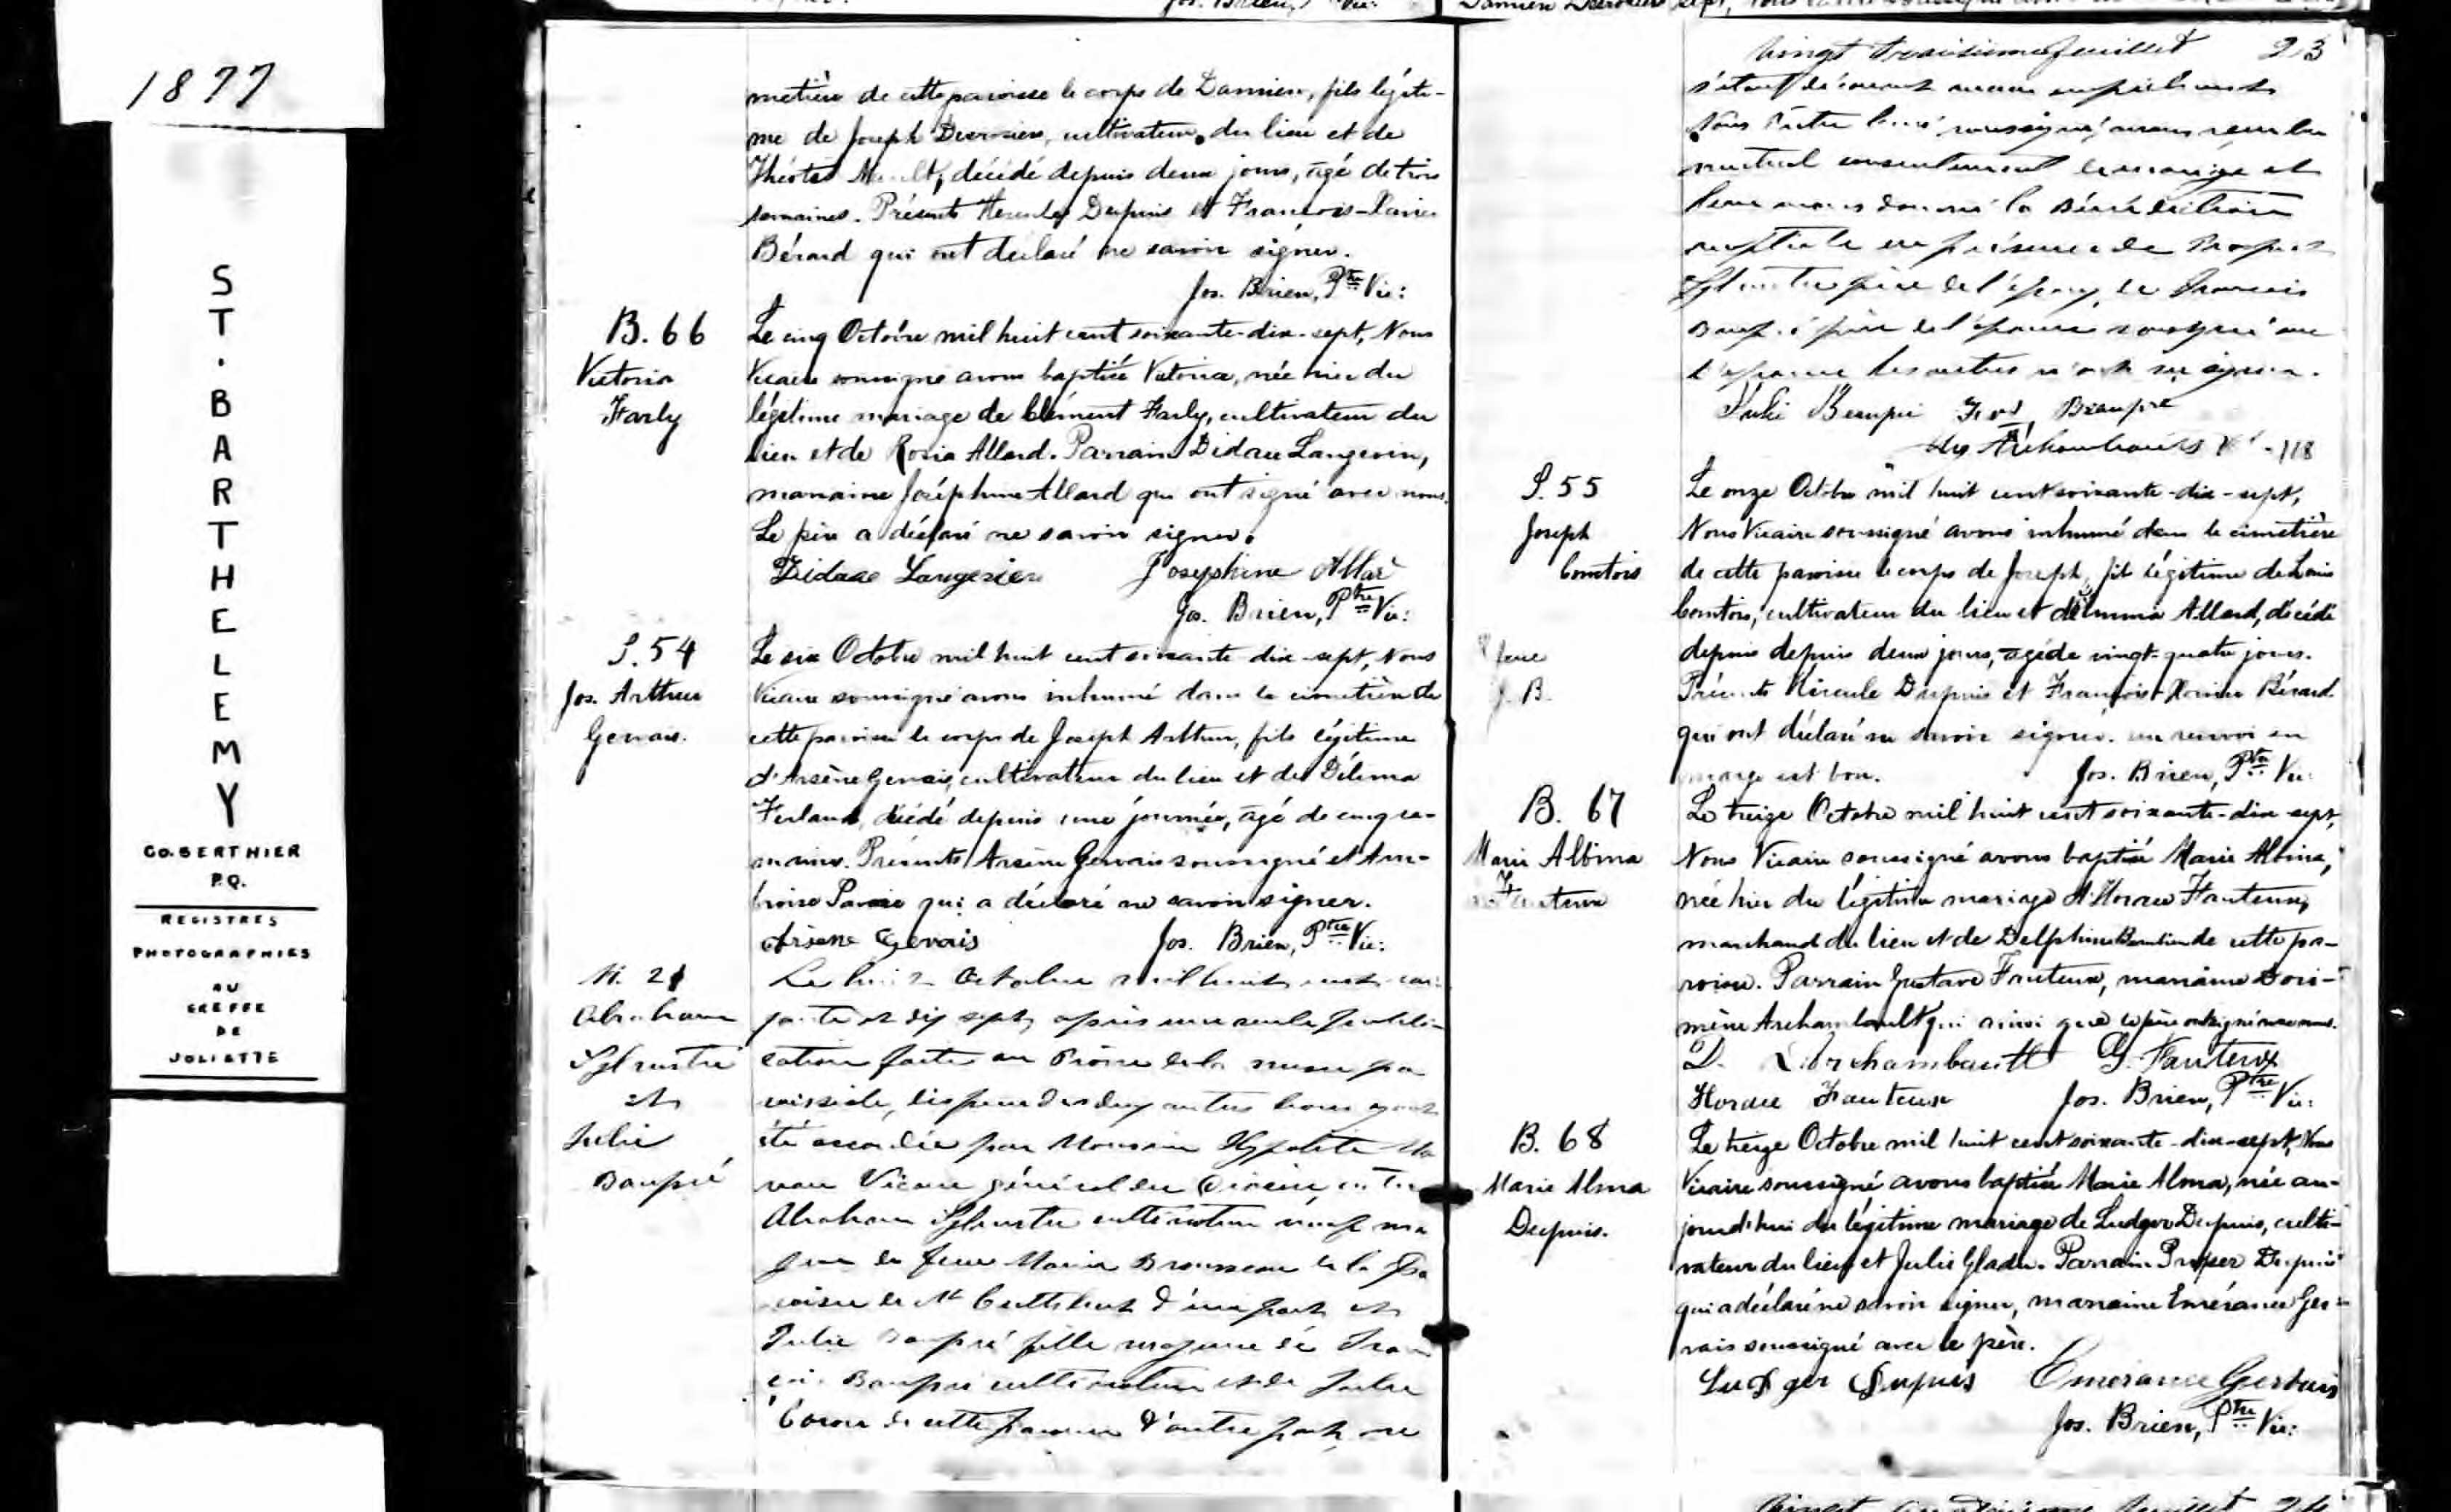 1877
ST. BARTHELEMY
CO. BERTHIER
P.Q.
REGISTRES
PHOTOGRAPHIES
AU
GREFFE
DE
JOLIETTE
Jos. Brien, Vic:
metière de cette paroisse le corps de Damien, fils légiti-
me de Joseph Desrosiers, cultivateur du lieu et de
décédé depuis deux jours, âgé de trois
semaines. Présents Hercules Dupuis et François-Xavier
Bérard qui ont déclaré ne savoir signer.
Jos. Brien, Ptre Vic:
B. 66
Victoria
Farly
Le cinq Octobre mil huit cent soixante-dix-sept, Nous
Vicaire soussigné avons baptisé Victoria, née hier du
légitime mariage de Clément Farly, cultivateur du
lieu et de Rosia Allard. Parrain Didace Langevin,
marraine Joséphine Allard qui ont signé avec nous.
Le père a déclaré ne savoir signer.
Didace Langevin Josephine Allar
Jos. Brien, Ptre Vic:
S. 54
Jos. Arthur
Gervais.
Le six Octobre mil huit cent soixante-dix-sept, Nous
Vicaire soussigné avons inhumé dans le cimetière de
cette paroisse le corps de Joseph Arthur, fils légitime
d'Arsène Gervais, cultivateur du lieu et de Délima
Ferland, décédé depuis une journée, âgé de cinq se-
maines. Présents Arsène Gervais soussigné et Am-
broise qui a déclaré ne savoir signer.
Arsene Gervais Jos. Brien, Ptre Vic:
M. 21
Abraham
Sylvestre
et
Julie
Baupré
Le huit Octobre mil huit cent soi
xante et dix sept, après une seule publi-
cation faite au Prône de la messe pa
roissiale, dispense des deux autres bans ayant
été accordée par Monsieur Hypolite Mo
reau Vicaire général du Diocèse, entre
Abraham Sylvestre cultivateur veuf ma
jeur de feue Marie Brousseau de la Pa
roisse de St Cuthbert d'une part et
Julie Baupré fille majeure de Fran
çois Baupré cultivateur et de Julie
de cette paroisse d'autre part, ne
Vingt troisième feuillet 23
s'étant découvert aucun empêchement
Nous Prêtre Curé soussigné avons reçu leur
mutuel consentement de mariage et
leur avons donné la Bénédiction
nuptiale en présence de Prosper
Sylvestre père de l'époux, de François
Baupré père de l'épouse soussigné avec
l'épouse les autres n'ont su signer.
Julie Beaupré Frs Beaupré
S. 55
Joseph
Comtois
Le onze Octobre mil huit cent soixante-dix-sept,
Nous Vicaire soussigné avons inhumé dans le cimetière
de cette paroisse le corps de Joseph, fils légitime de Louis
Comtois, cultivateur du lieu et d'Emma Allard, décédé
depuis depuis deux jours, âgé de vingt-quatre jours.
Présents Hercule Dupuis et François-Xavier Bérard
qui ont déclaré ne savoir signer. un renvoi en
marge est bon. Jos. Brien, Ptre Vic:
feue
J. B.
B. 67
Marie Albina
Fauteux
Le treize Octobre mil huit cent soixante-dix-sept,
Nous Vicaire soussigné avons baptisé Marie Albina,
née hier du légitime mariage d'Horace Fauteux,
marchand du lieu et de Delphine de cette pa-
roisse. Parrain Gustave Fauteux, marraine Dori-
mène Archambault qui ainsi que le père ont signé avec nous.
D. Archambault G. Fauteux
Horace Fauteux Jos. Brien, Ptre Vic:
B. 68
Marie Alma
Dupuis.
Le treize Octobre mil huit cent soixante-dix-sept, Nous
Vicaire soussigné avons baptisé Marie Alma, née au-
jourd'hui du légitime mariage de Ludger Dupuis, culti-
vateur du lieu et Julie Gladu. Parrain Prosper Dupuis
qui a déclaré ne savoir signer, marraine Emérance Ger-
vais soussigné avec le père.
Ludger Dupuis Emerance Gervais
Jos. Brien, Ptre Vic: